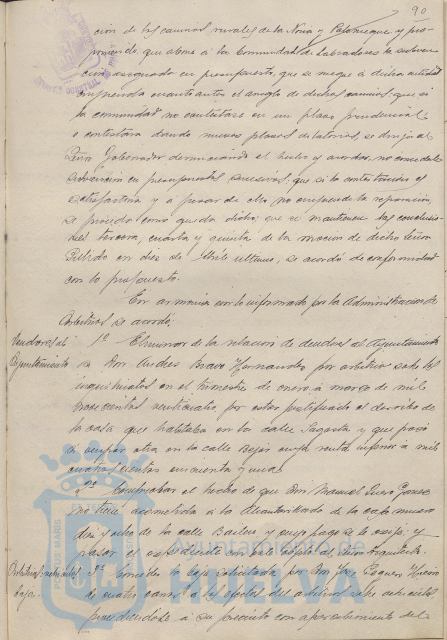 90
ción de los caminos rurales de la Noria y Palomeque y pro-
poniendo, que abone á la Comunidad de Labradores la subven-
ción asignada en presupuesto, que se niegue á dicha entidad
emprenda cuanto antes el arreglo de dichos caminos, que si
la comunidad no contestase en un plazo prudencial
o contestara dando nuevos plazos dilatorios, se dirija al
Señor Gobernador denunciando el hecho y acordar no concederle
subvención en presupuestos sucesivos; que si la contestación es
satisfactoria y á pesar de ella no emprende la reparación,
se proceda como queda dicho, que se mantienen las conclusio-
nes tercera, cuarta y quinta de la moción de dicho Señor
Pellido en diez de Abril último, se acordó de conformidad
con lo propuesto.
En armonía con lo informado por la Administración de
Arbitrios se acordó:
Deudores al
Ayuntamiento
1º Eliminar de la relación de deudores al Ayuntamiento
a Don Andrés Bravo Hernández por arbitrio sobre los
inquilinatos en el trimestre de enero a marzo de mil
novecientos veinticuatro, por estar justificado el derribo de
la casa que habitaba en la calle Sagasta y que pasó
á ocupar otra en la calle Béjar cuya renta inferior a mil
cuatrocientas cincuenta y una.
2º Comprobar el hecho de que Don Manuel
no tiene acometida a la alcantarilla de la casa número
diez y ocho de la calle Bailén y
pasar el expediente con este objeto al Señor Arquitecto.
3º Conceder la baja solicitada por Don José
de cuatro carros á los efectos del arbitrio sobre vehículos
procediéndose á su precinto con apercibimiento del
Ayuntamiento de
HUELVA